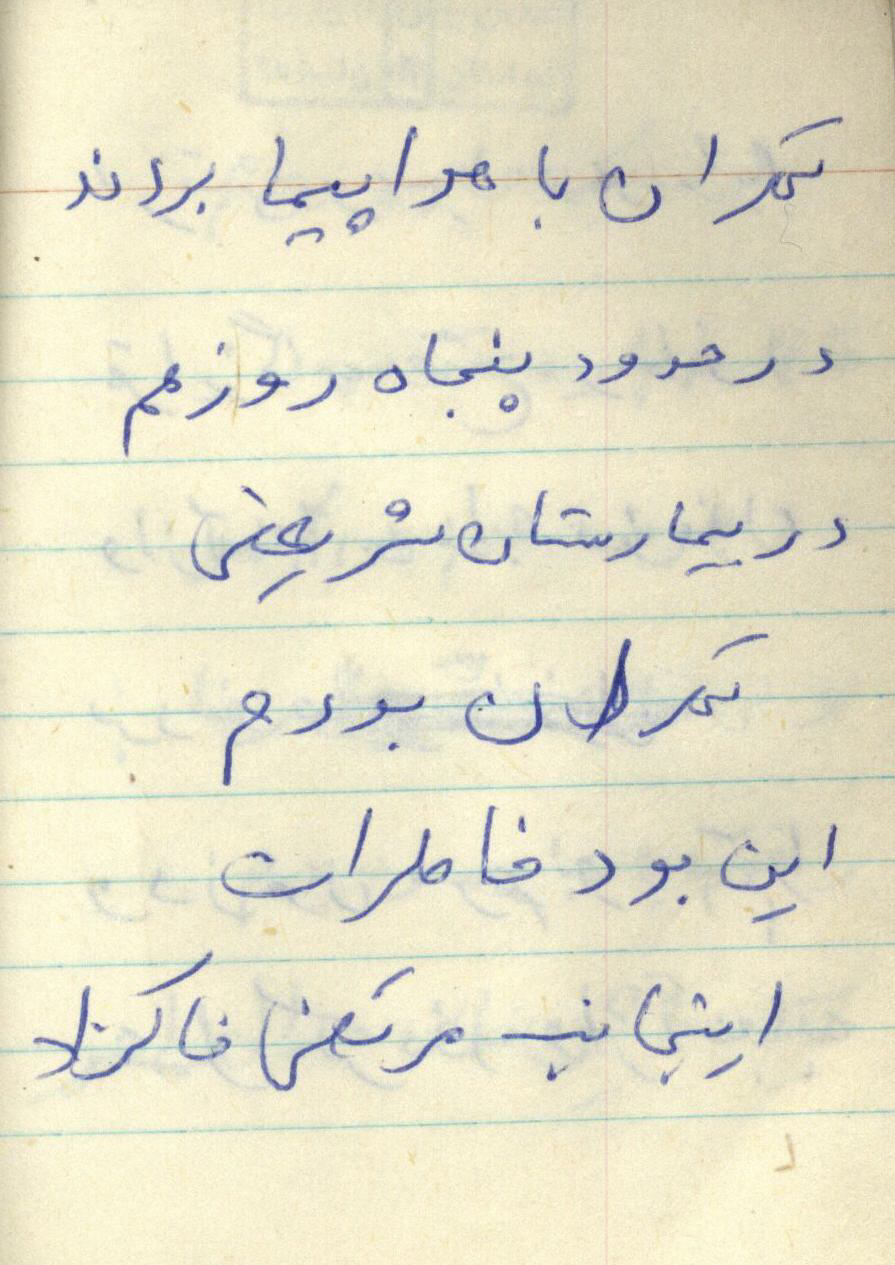 تهران با هواپیما بردند
در حدود پنجاه روز هم
در بیمارستان شریعتی
تهران بودم
این بود خاطرات
اینجانب مرتضی خاکزاد